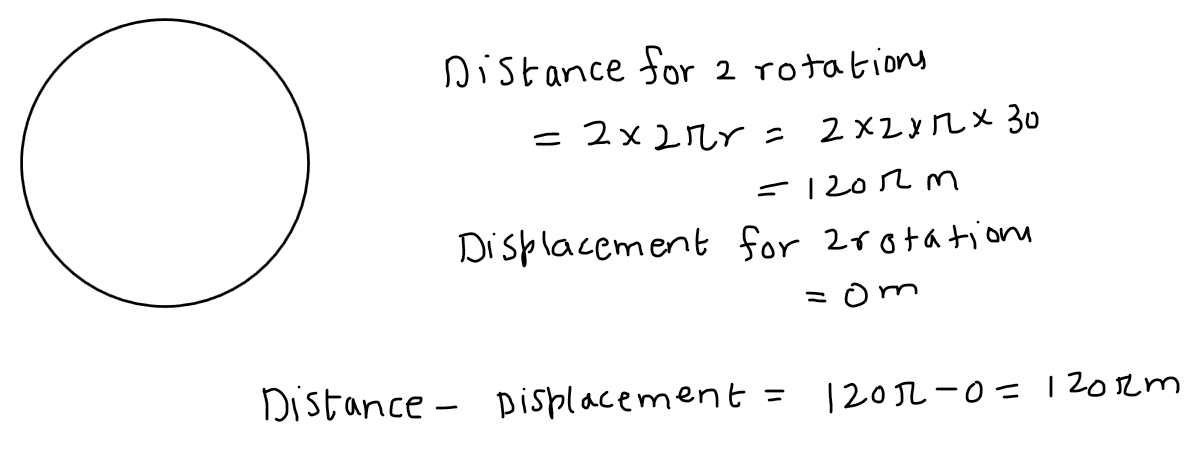 Distance for 2 rotations
= 2 × 2πr = 2 × 2 × π × 30
= 120 π m
Displacement for 2 rotations
= 0 m
Distance - Displacement = 120π - 0 = 120πm